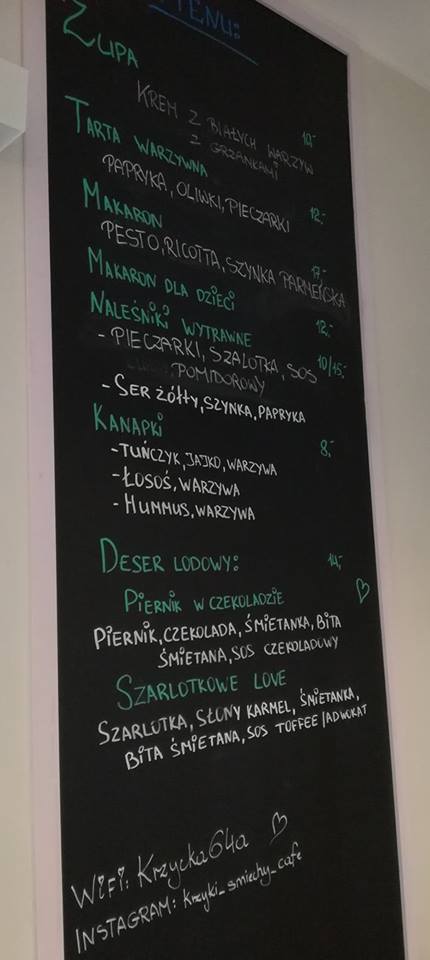 MENU:
ZUPA
KREM Z BIAŁYCH WARZYW 10,-
Z GRZANKAMI
TARTA WARZYWNA
PAPRYKA, OLIWKI, PIECZARKI 12,-
MAKARON
PESTO, RICOTTA, SZYNKA PARMEŃSKA 17,-
MAKARON DLA DZIECI
NALEŚNIKI WYTRAWNE 12,-
- PIECZARKI, SZALOTKA, SOS 10/15,-
POMIDOROWY
- SER ŻÓŁTY, SZYNKA, PAPRYKA
KANAPKI 8,-
- TUŃCZYK, JAJKO, WARZYWA
- ŁOSOŚ, WARZYWA
- HUMMUS, WARZYWA
DESER LODOWY: 14,-
PIERNIK W CZEKOLADZIE
PIERNIK, CZEKOLADA, ŚMIETANKA, BITA
ŚMIETANA, SOS CZEKOLADOWY
SZARLOTKOWE LOVE
SZARLOTKA, SŁONY KARMEL, ŚMIETANKA,
BITA ŚMIETANA, SOS TOFFEE/ADWOKAT
WIFI: Krzycka64a
INSTAGRAM: krzyki_smiechy_cafe